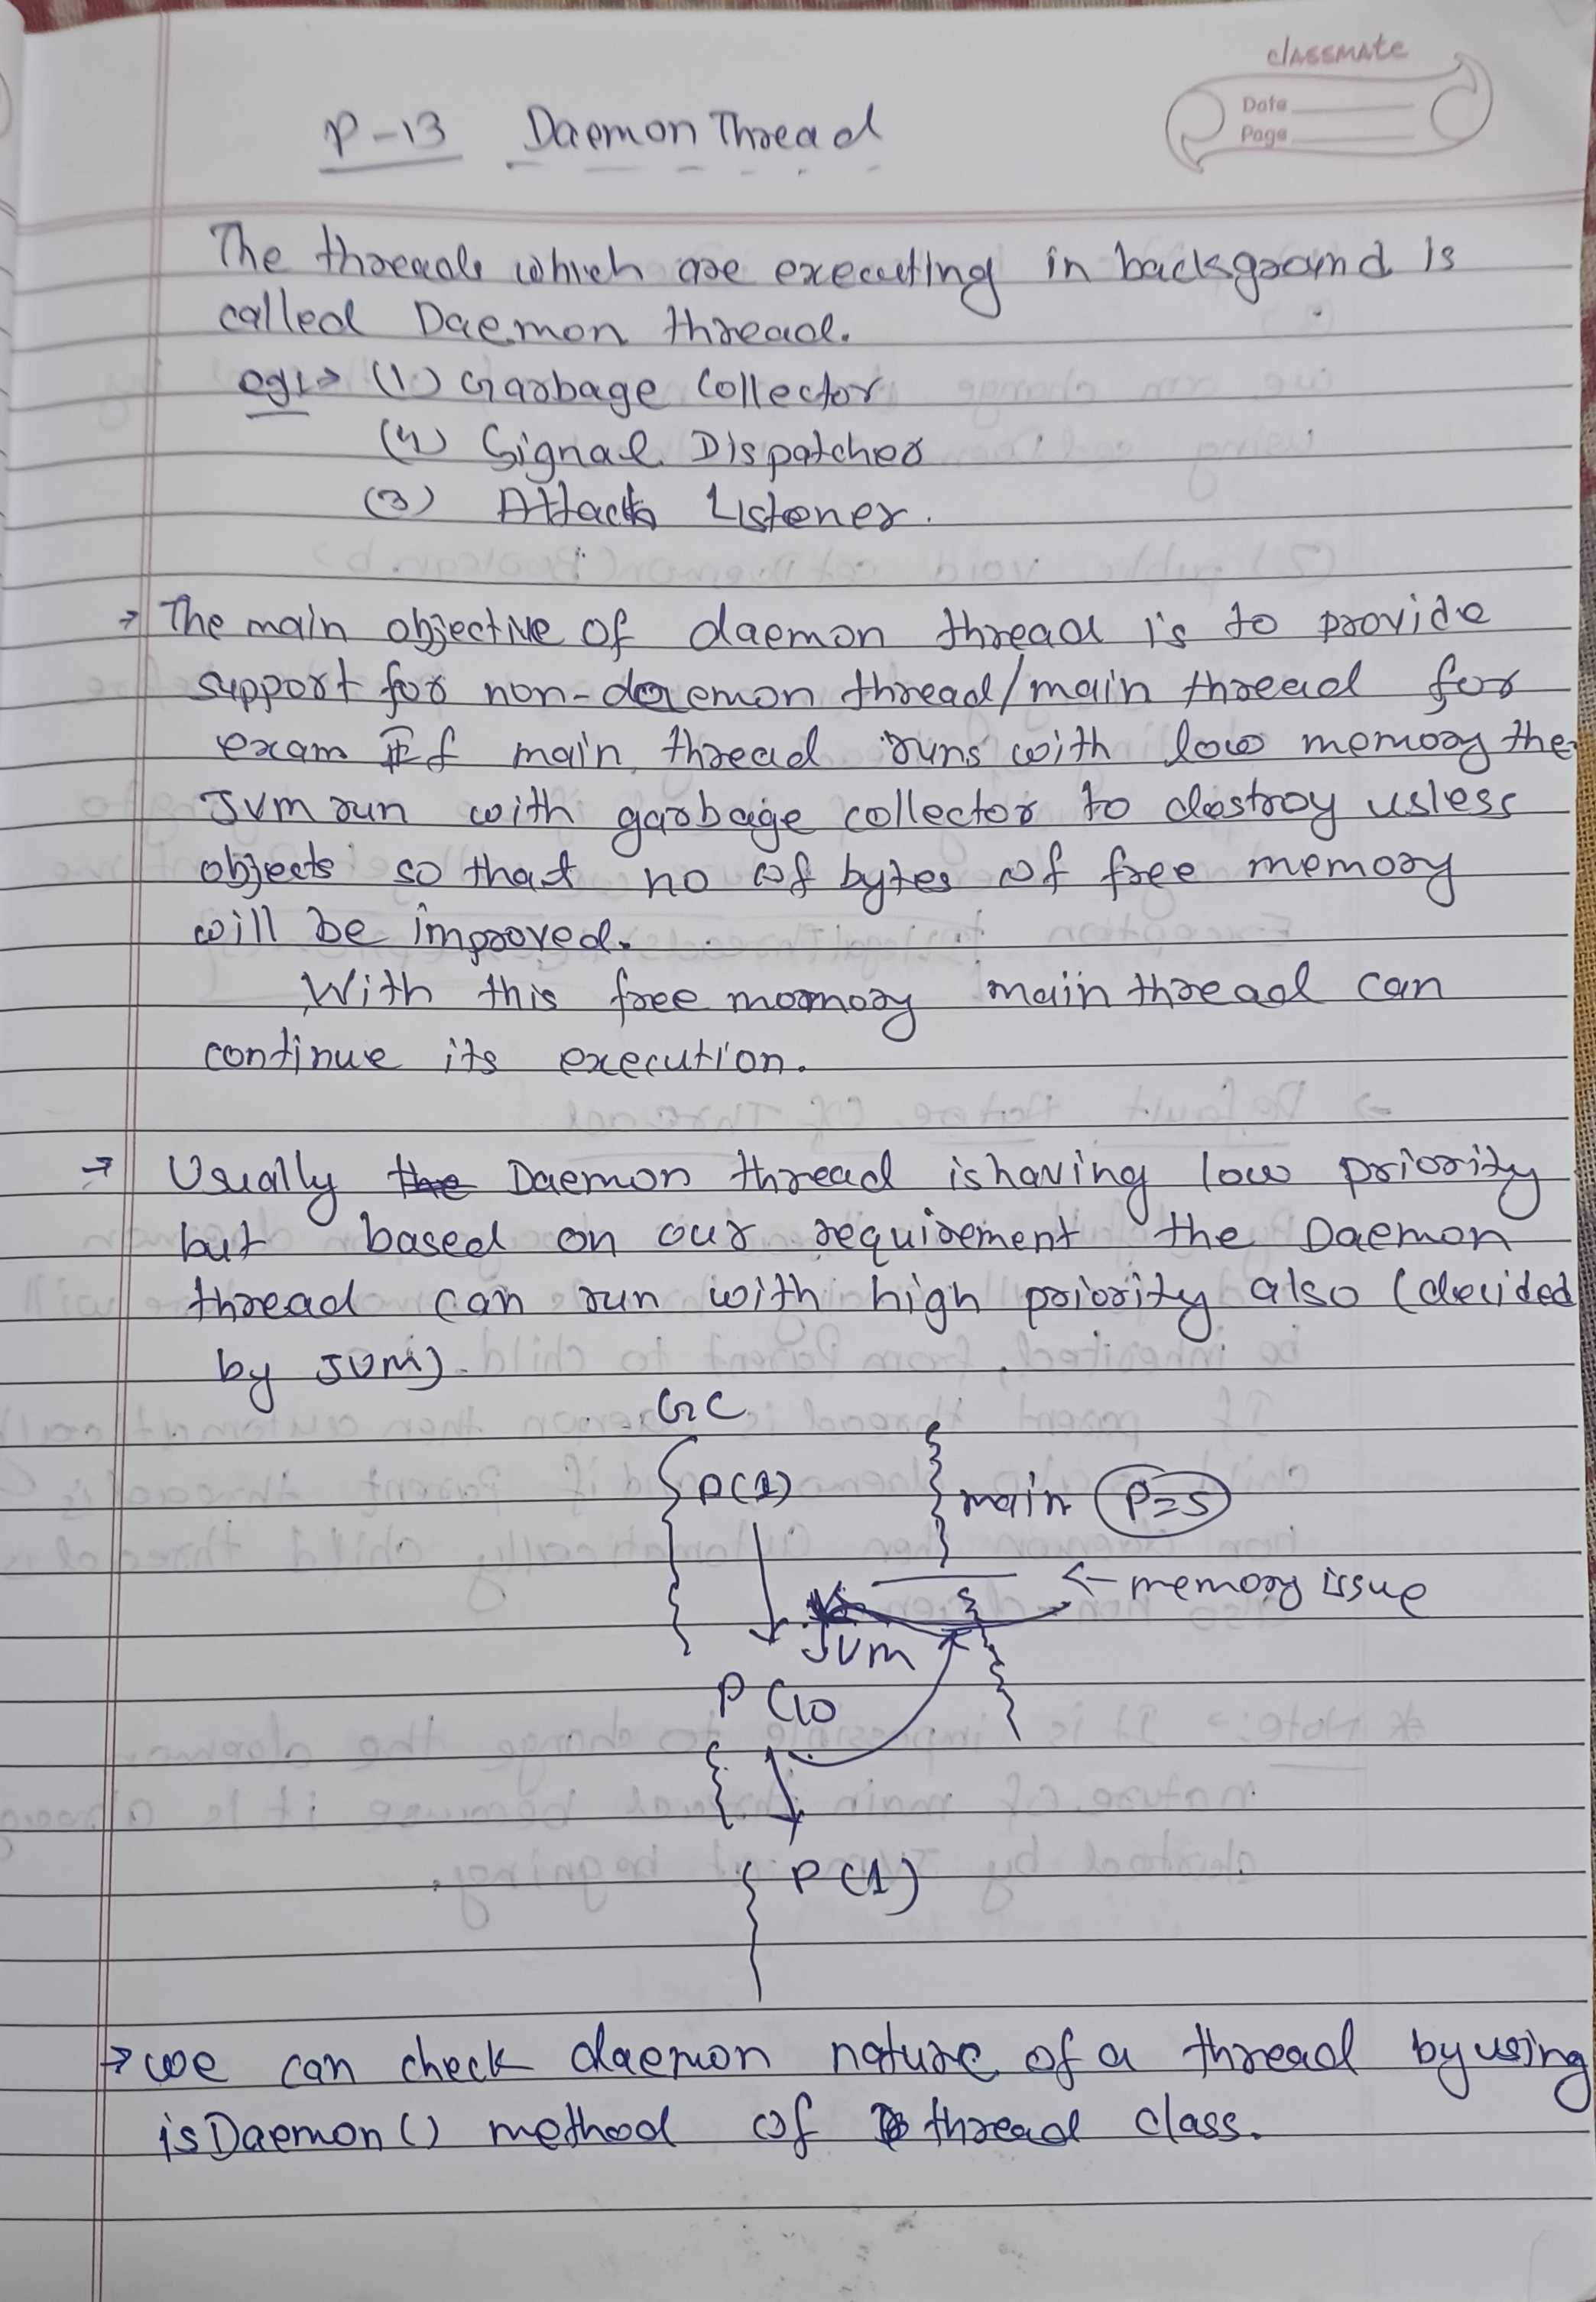 classmate
Date
Page
P-13 Daemon Thread
The threads which are executing in background is
called Daemon thread.
eg:-> (1) Garbage Collector
(2) Signal Dispatcher
(3) Attack Listener.
→ The main objective of daemon thread is to provide
support for non-daemon thread/main thread for
exam If main thread runs with low memory the
JVM run with garbage collector to destroy usless
objects so that no of bytes of free memory
will be improved.
With this free momory main thread can
continue its execution.
→ Usually the Daemon thread is having low priority
but based on our requirement the Daemon
thread can run with high priority also (decided
by JVM).
GC
P(1)
main P=5
<- memory issue
JVM
P(10
P(1)
→ we can check daemon nature of a thread by using
isDaemon() method of thread class.